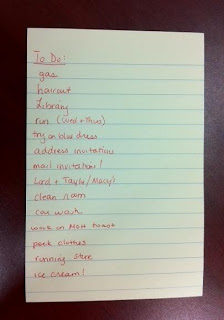 To Do:
gas
haircut
Library
run (Wed + Thurs)
try on blue dress
address invitation
mail invitation!
Lord + Taylor/Macy's
clean room
car wash
work on MOH toast
pack clothes
running store
ice cream!